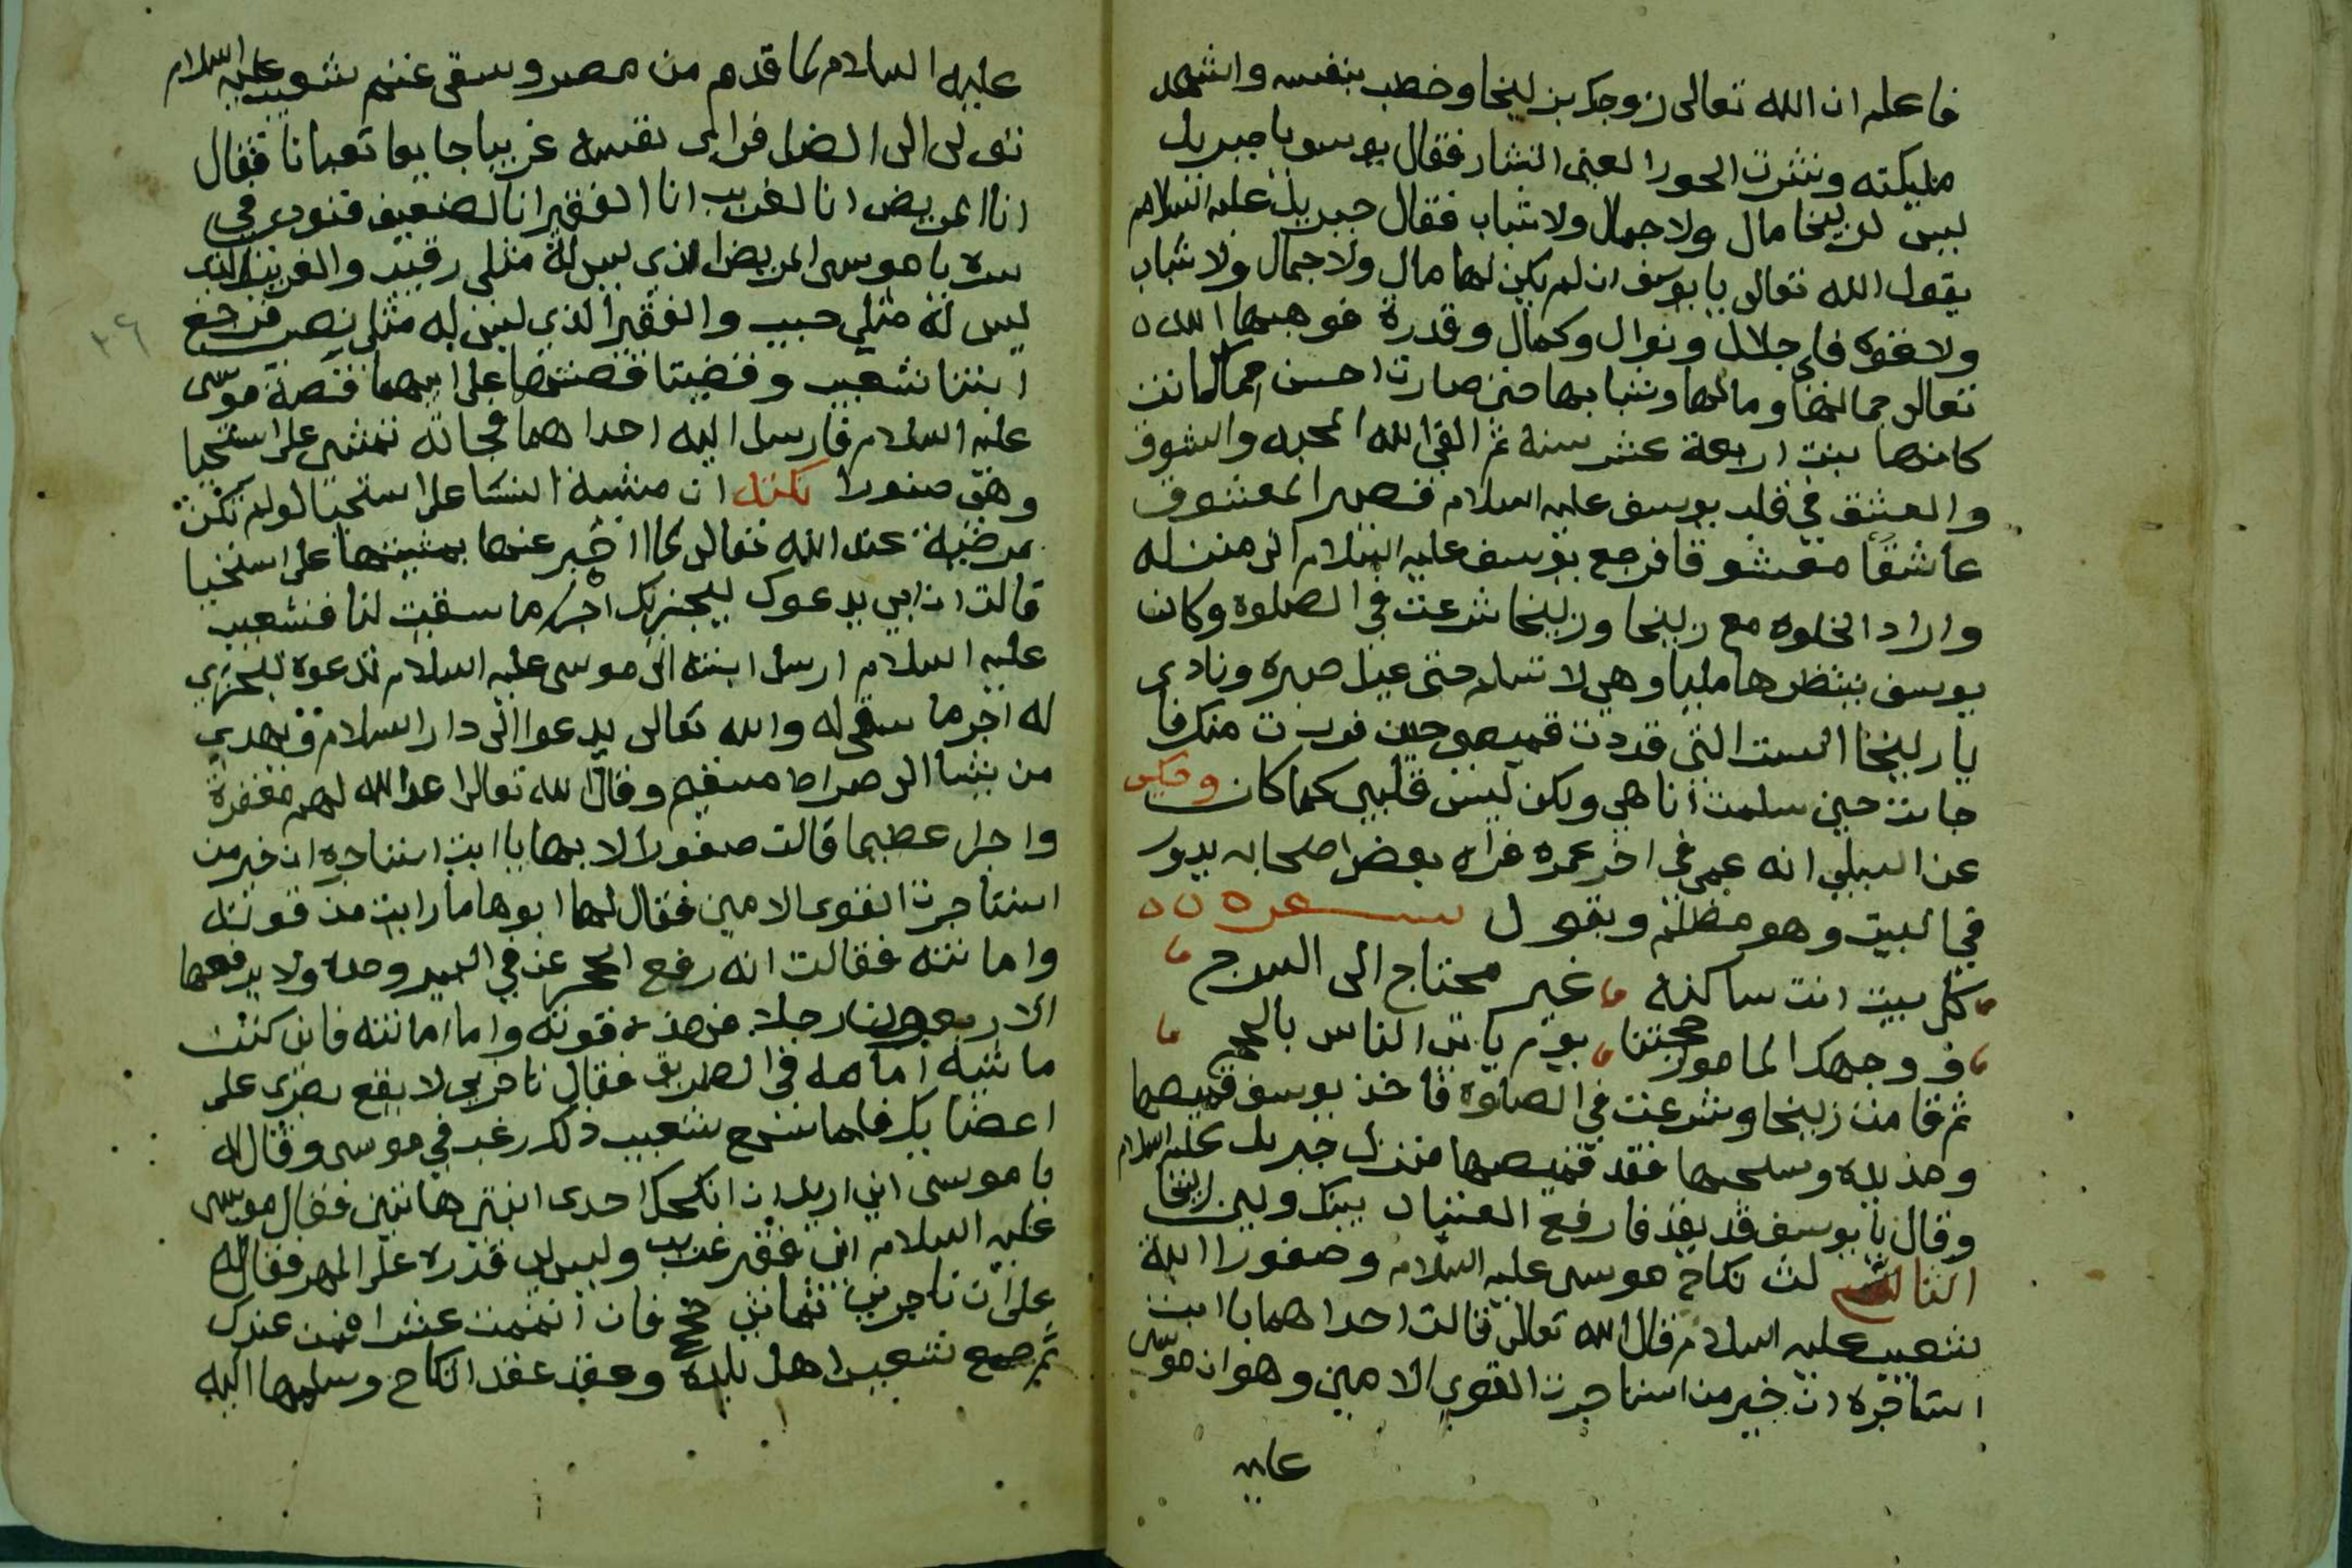 فاعلم ان الله تعالى زوجك بزليخا وخطب بنفسه واشهد
مليكته ونثرت الحور العين النثار فقال يوسف يا جبريل
ليس لزليخا مال ولا جمال ولا شباب فقال جبريل عليه السلام
يقول الله تعالى يا يوسف ان لم يكن لها مال ولا جمال ولا شباب
ولا قوة فلي جلال ونوال وكمال وقدرة فوهبها الله
تعالى جمالها ومالها وشبابها حتى صارت احسن مما كانت
كانها بنت اربعة عشر سنة ثم القى الله المحبه والشوق
والعشق في قلب يوسف عليه السلام فصير المعشوق
عاشقا معشوقا فرجع يوسف عليه السلام الى منزله
واراد الخلوة مع زليخا وزليخا شرعت في الصلوة وكان
يوسف ينتظرها مليا وهي لا تسلم حتى عيل صبره ونادى
يا زليخا الست التي قددت قميصي حين فررت منك فا
جابت حين سلمت انا هي ولكن ليس قلبي كما كان وحكي
عن الشبلي انه عمي في اخر عمره فراه بعض اصحابه يدور
في البيت وهو مظلم ويقول شعره
كل بيت انت ساكنه غير محتاج الى السرج
ووجهك المامول حجتنا يوم ياتي الناس بالحجج
ثم قامت زليخا وشرعت في الصلوة فاخذ يوسف قميصها
ومد يده وسحبها فقد قميصها فنزل جبريل عليه السلام
وقال يا يوسف قد بقد فارفع العتاب بينك وبين زليخا
الثالث نكاح موسى عليه السلام وصفورا ابنة
شعيب عليه السلام قال الله تعالى قالت احداهما يا ابت
استاجره ان خير من استاجرت القوي الامين وهو ان موسى
عليه
عليه السلام لما قدم من مصر وسقى غنم شعيب عليه السلام
تولى الى الظل فراى نفسه غريبا جايعا تعبانا فقال
انا المريض انا الغريب انا الفقير انا الضعيف فنودي في
سره يا موسى المريض الذي ليس له مثلي رقيب والغريب الذي
ليس له مثلي حبيب والفقير الذي ليس له مثلي نصيب فرجع
ابنتا شعيب وقصتا قصتهما على ابيهما قصة موسى
عليه السلام فارسل اليه احداهما فجاته تمشي على استحيا
وهي صفورا نكته ان مشية النسا على استحيا لو لم تكن
مرضية عند الله تعالى لما اخبر عنها بمشيتها على استحيا
قالت ان ابي يدعوك ليجزيك اجر ما سقيت لنا فشعيب
عليه السلام ارسل ابنته الى موسى عليه السلام تدعوه ليجزي
له اجر ما سقى له والله تعالى يدعوا الى دار السلام ويهدي
من يشا الى صراط مستقيم وقال الله تعالى اعد الله لهم مغفرة
واجرا عظيما قالت صفورا لابيها يا ابت استاجره ان خير من
استاجرت القوي الامين فقال لها ابوها ما رايت من قوته
وامانته فقالت انه رفع الحجر عن في البير وحده ولا يرفعها
الا اربعون رجلا فهذه قوته واما امانته فاني كنت
ماشية امامه في الطريق فقال تاخري لا يقع بصري على
اعضايك فلما سمع شعيب ذلك رغب في موسى وقال له
يا موسى اني اريد ان انكحك احدى ابنتي هاتين فقال موسى
عليه السلام اني فقير غريب وليس لي قدره على المهر فقال له
على ان تاجرني ثماني حجج فان اتممت عشرا فمن عندك
ثم جمع شعيب اهل بلده وعقد عقد النكاح وسلمها اليه
٢٦